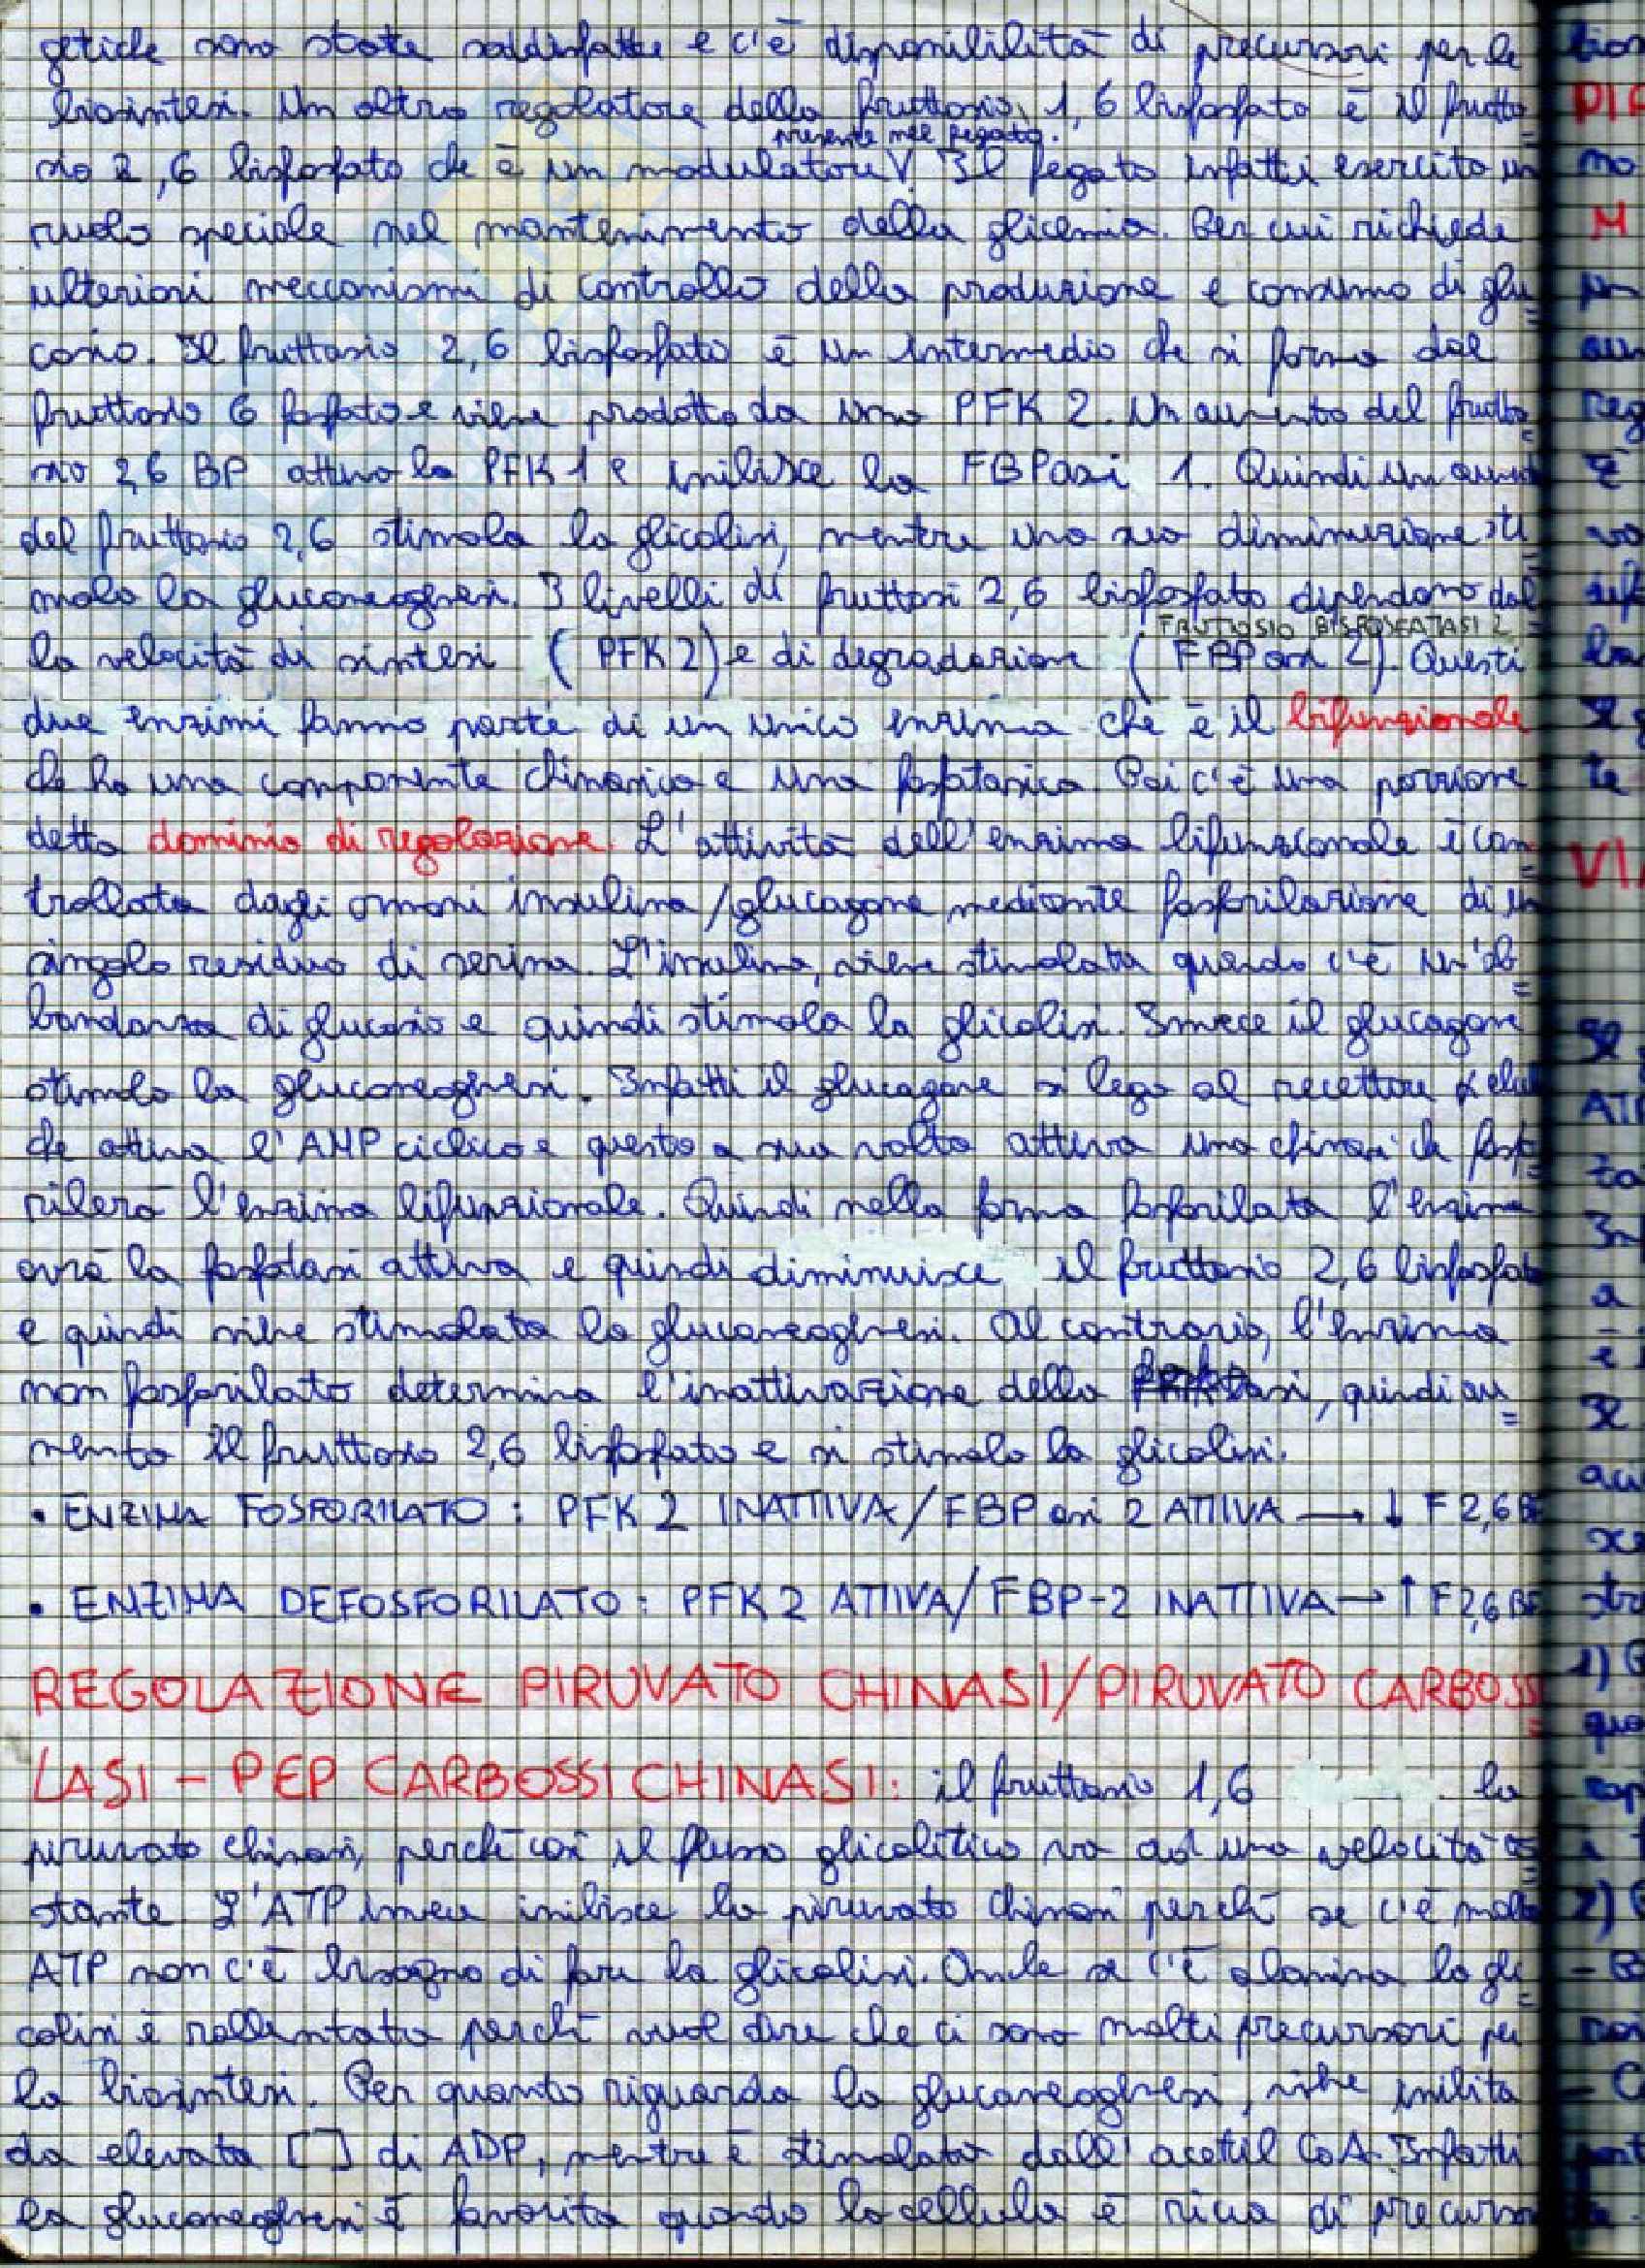 getiche sono state soddisfatte e c'è disponibilità di precursori per le
biosintesi. Un altro regolatore della fruttosio, 1,6 bisfosfato è il frutto=
presente nel fegato.
sio 2,6 bisfosfato che è un modulatore V. Il fegato infatti esercita un
ruolo speciale nel mantenimento della glicemia. Per cui richiede
ulteriori meccanismi di controllo della produzione e consumo di glu=
cosio. Il fruttosio 2,6 bisfosfato è un intermedio che si forma dal
fruttosio 6 fosfato e viene prodotto da una PFK 2. Un aumento del frutto=
sio 2,6 BP attiva la PFK 1 e inibisce la FBPasi 1. Quindi un
del fruttosio 2,6 stimola la glicolisi, mentre una sua diminuzione sti=
mola la gluconeoghesi. I livelli di fruttosi 2,6 bisfosfato dipendono dal
FRUTTOSIO BISFOSFATASI 2
la velocità di sintesi (PFK 2) e di degradazione (FBPasi 2). Questi
due enzimi fanno parte di un unico enzima che è il bifunzionale
che ha una componente chinasica e una fosfatasica. Poi c'è una porzione
detta dominio di regolazione. L'attività dell'enzima bifunzionale è con=
trollata dagli ormoni insulina/glucagone mediante fosforilazione di un
singolo residuo di serina. L'insulina, viene stimolata quando c'è un'ab=
bondanza di glucosio e quindi stimola la glicolisi. Invece il glucagone
stimola la gluconeoghesi. Infatti il glucagone si lega al recettore
che attiva l'AMP ciclico e questo a sua volta attiva una chinasi che fosfo=
rilerà l'enzima bifunzionale. Quindi nella forma fosforilata l'enzima
avrà la fosfatasi attiva e quindi diminuisce il fruttosio 2,6 bisfosfato
e quindi viene stimolata la gluconeoghesi. Al contrario, l'enzima
non fosforilato determina l'inattivazione della quindi au=
menta il fruttosio 2,6 bisfosfato e si stimola la glicolisi.
• ENZIMA FOSFORILATO: PFK 2 INATTIVA/FBPasi 2 ATTIVA → ↓ F 2,6 BP
• ENZIMA DEFOSFORILATO: PFK 2 ATTIVA/FBP-2 INATTIVA → ↑ F 2,6 BP
REGOLAZIONE PIRUVATO CHINASI/PIRUVATO CARBOSS=
LASI - PEP CARBOSSICHINASI: il fruttosio 1,6 la
piruvato chinasi, perchè così il flusso glicolitico va ad una velocità co=
stante. L'ATP invece inibisce la piruvato chinasi perchè se c'è molto
ATP non c'è bisogno di fare la glicolisi. Anche se c'è alanina la gli=
colisi è rallentata perchè vuol dire che ci sono molti precursori per
la biosintesi. Per quanto riguarda la gluconeoghesi, viene inibita
da elevata [ ] di ADP, mentre è stimolata dall'acetil CoA. Infatti
la gluconeoghesi è favorita quando la cellula è ricca di precurso